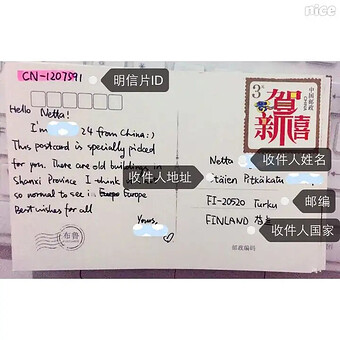 nice
CN-1207591
明信片ID
3元
中国邮政
CHINA
贺新禧
Hello Netta!
I'm 24 from China:)
This postcard is specially picked
for you. There are old buildings in
Shanxi Province I think
so normal to see in Europe
Best wishes for all
Yours,
布鲁
Netta
收件人姓名
收件人地址
Itäisen Pitkäkatu
邮编
FI-20520 Turku
FINLAND 芬兰
收件人国家
邮政编码